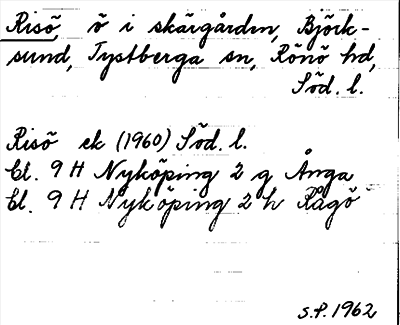 Risö, ö i skärgården, Björk-
sund, Tystberga sn, Rönö hd,
Söd. l.
Risö ek (1960) Söd. l.
bl. 9 H Nyköping 2 g Ånga
bl. 9 H Nyköping 2 h Rågö
S.P. 1962